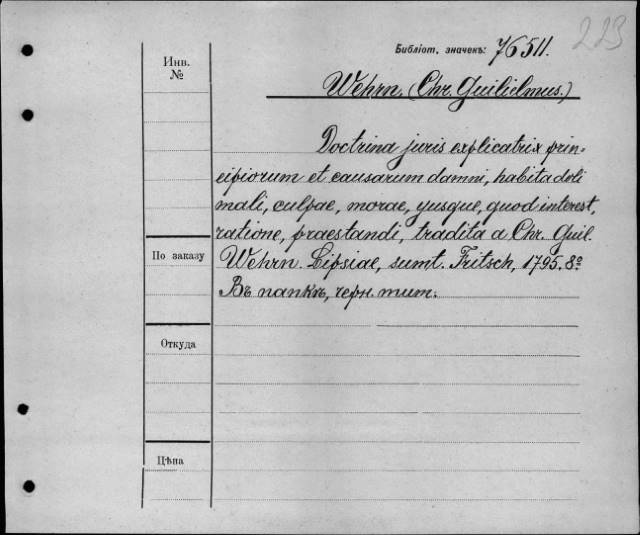 223
Библіот. значекъ: 76511.
Инв.
№
Wehrn. (Chr. Guilielmus.)
Doctrina juris explicatrix prin-
cipiorum et causarum damni, habita doli
mali, culpae, morae, yusque, quod interest,
ratione, praestandi, tradita a Chr. Guil.
По заказу
Wehrn. Lipsiae, sumt. Fritsch, 1795. 8º
Въ папкѣ, черн. тит.
Откуда
Цѣна